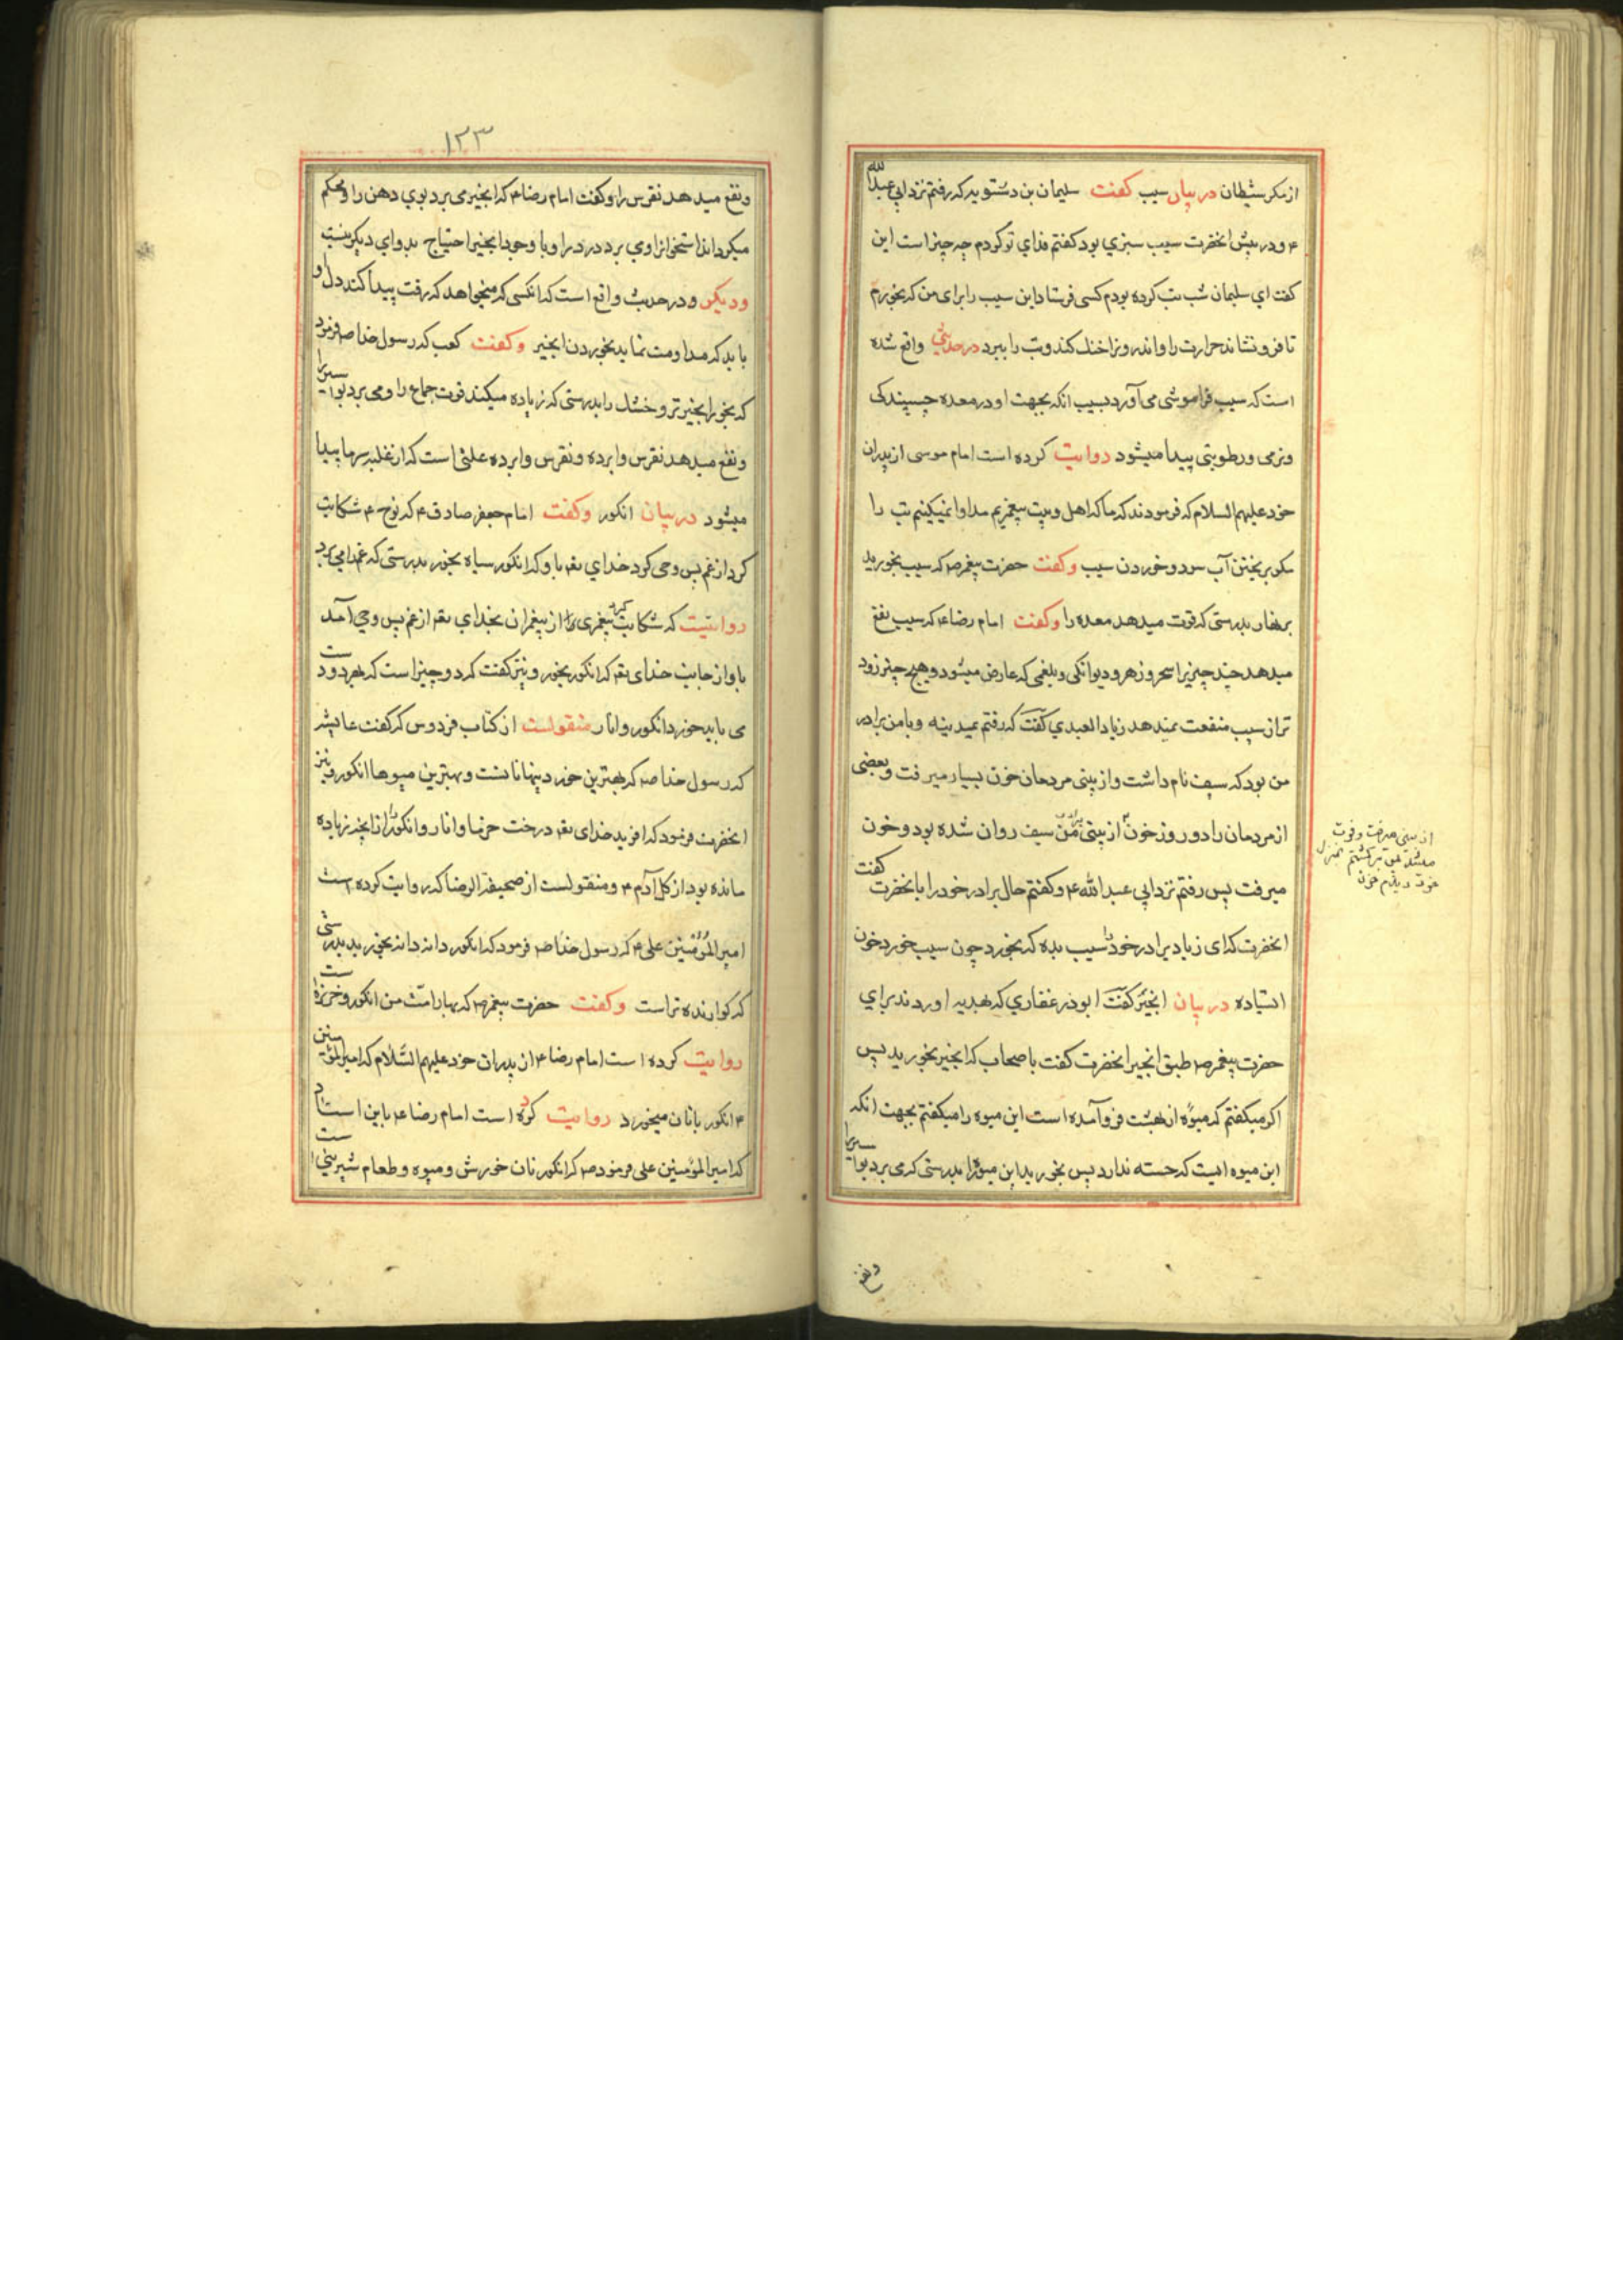 از مکر شیطان در بیان سیب گفت سلیمان بن دستویه که رفتم نزد ابی عبدالله
ع و در پیش انحضرت سیب سبزی بود گفتم فدای تو گردم چه چیز است این
گفت ای سلیمان شب تب کرده بودم کسی فرستاد این سیب را برای من که بخورم
تا فرو نشاند حرارت را و اندرونرا خنک کند و تب را ببرد در حدیثی واقع شده
است که سیب فراموشی می آورد بسبب انکه بجهت او در معده چسپندگی
و نرمی و رطوبتی پیدا میشود روایت کرده است امام موسی از پدران
خود علیهم السلام که فرمودند که ما که اهل وبیت پیغمبریم مداوا نمیکنیم تب را
مکر بریختن آب سرد و خوردن سیب و گفت حضرت پیغمبر ص که سیب بخورید
بر نهار بدرستی که قوت میدهد معده را و گفت امام رضا ع که سیب نفع
میدهد چند چیز را سحر و زهر و دیوانگی و بلغمی که عارض میشود و هیچ چیز زود
تر از سیب منفعت نمیدهد زیاد العبدی گفت که رفتم بمیدینه و با من برادر
من بود که سیف نام داشت و از بینی مردمان خون بسیار میرفت و بعضی
از مردمان را دو روز خون از بینی برادر من سیف روان شده بود و خون
از بینی میرفت و فوت
میشد من برگشتم بمنزل
خود دیدم خون
میرفت پس رفتم نزد ابی عبدالله ع و گفتم حال برادر خود را با نحضرت گفت
انحضرت که ای زیاد برادر خود را سیب بده که بخورد چون سیب خورد خون
استاده در بیان انجیر گفت ابوذر غفاری که بهدیه اوردند برای
حضرت پیغمبر ص طبق انجیر انحضرت گفت با صحاب که انجیر بخورید پس
اگر میگفتم که میوه از بهشت فرو آمده است این میوه را میگفتم بجهت انکه
این میوه ایست که خسته ندارد پس بخورید این میوه را بدرستی که می برد بواسیر را
و نفع
۱۲۳
و نفع میدهد نقرس را و گفت امام رضا ع که انجیر می برد بوی دهن را و محکم
میگرداند استخوانرا و می برد درد را و با وجود انجیر احتیاج بدوای دیگر نیست
و دیگر و در حدیث واقع است که انکسی که میخواهد که رقت پیدا کند دل او
باید که مداومت نماید بخوردن انجیر و گفت کعب که رسول خدا ص فرمود
که بخور انجیر تر و خشک را بدرستی که زیاده میکند قوت جماع را و می برد بواسیر را
و نفع میدهد نقرس و ابرده و نقرس و ابرده علتی است که از غلبه سرما پیدا
میشود در بیان انکور و گفت امام جعفر صادق ع که نوح ع شکایت
کرد از غم پس وحی کرد خدای تع باو که انکور سیاه بخور بدرستی که غم را می برد
روایتست که شکایت کرد پیغمبری از پیغمبران بخدای تع از غم پس وحی آمد
باو از جانب خدای تع که انکور بخور و نیز گفت که دو چیز است که بهر دو دست
می باید خورد انکور و انار منقولست از کتاب فردوس که گفت عایشه
که رسول خدا ص که بهترین خوردینها نانست و بهترین میوها انکور و نیز
انحضرت فرمود که افرید خدای تع درخت خرما و انار و انکور را از انچه زیاده
مانده بود از گل آدم ع و منقولست از صحیفة الرضا که روایت کرده است
امیر المؤمنین علی ع که رسول خدا ص فرمود که انکور دانه دانه بخورید بدرستی
که گوارنده تر است و گفت حضرت پیغمبر ص که بهار امت من انکور و خربزه است
روایت کرده است امام رضا ع از پدران خود علیهم السلام که امیر المؤمنین
ع انکور با نان میخورد روایت کرده است امام رضا ع باین اسناد
که امیر المؤمنین علی فرمود ص که انکور نان خورش و میوه و طعام شیرینی است